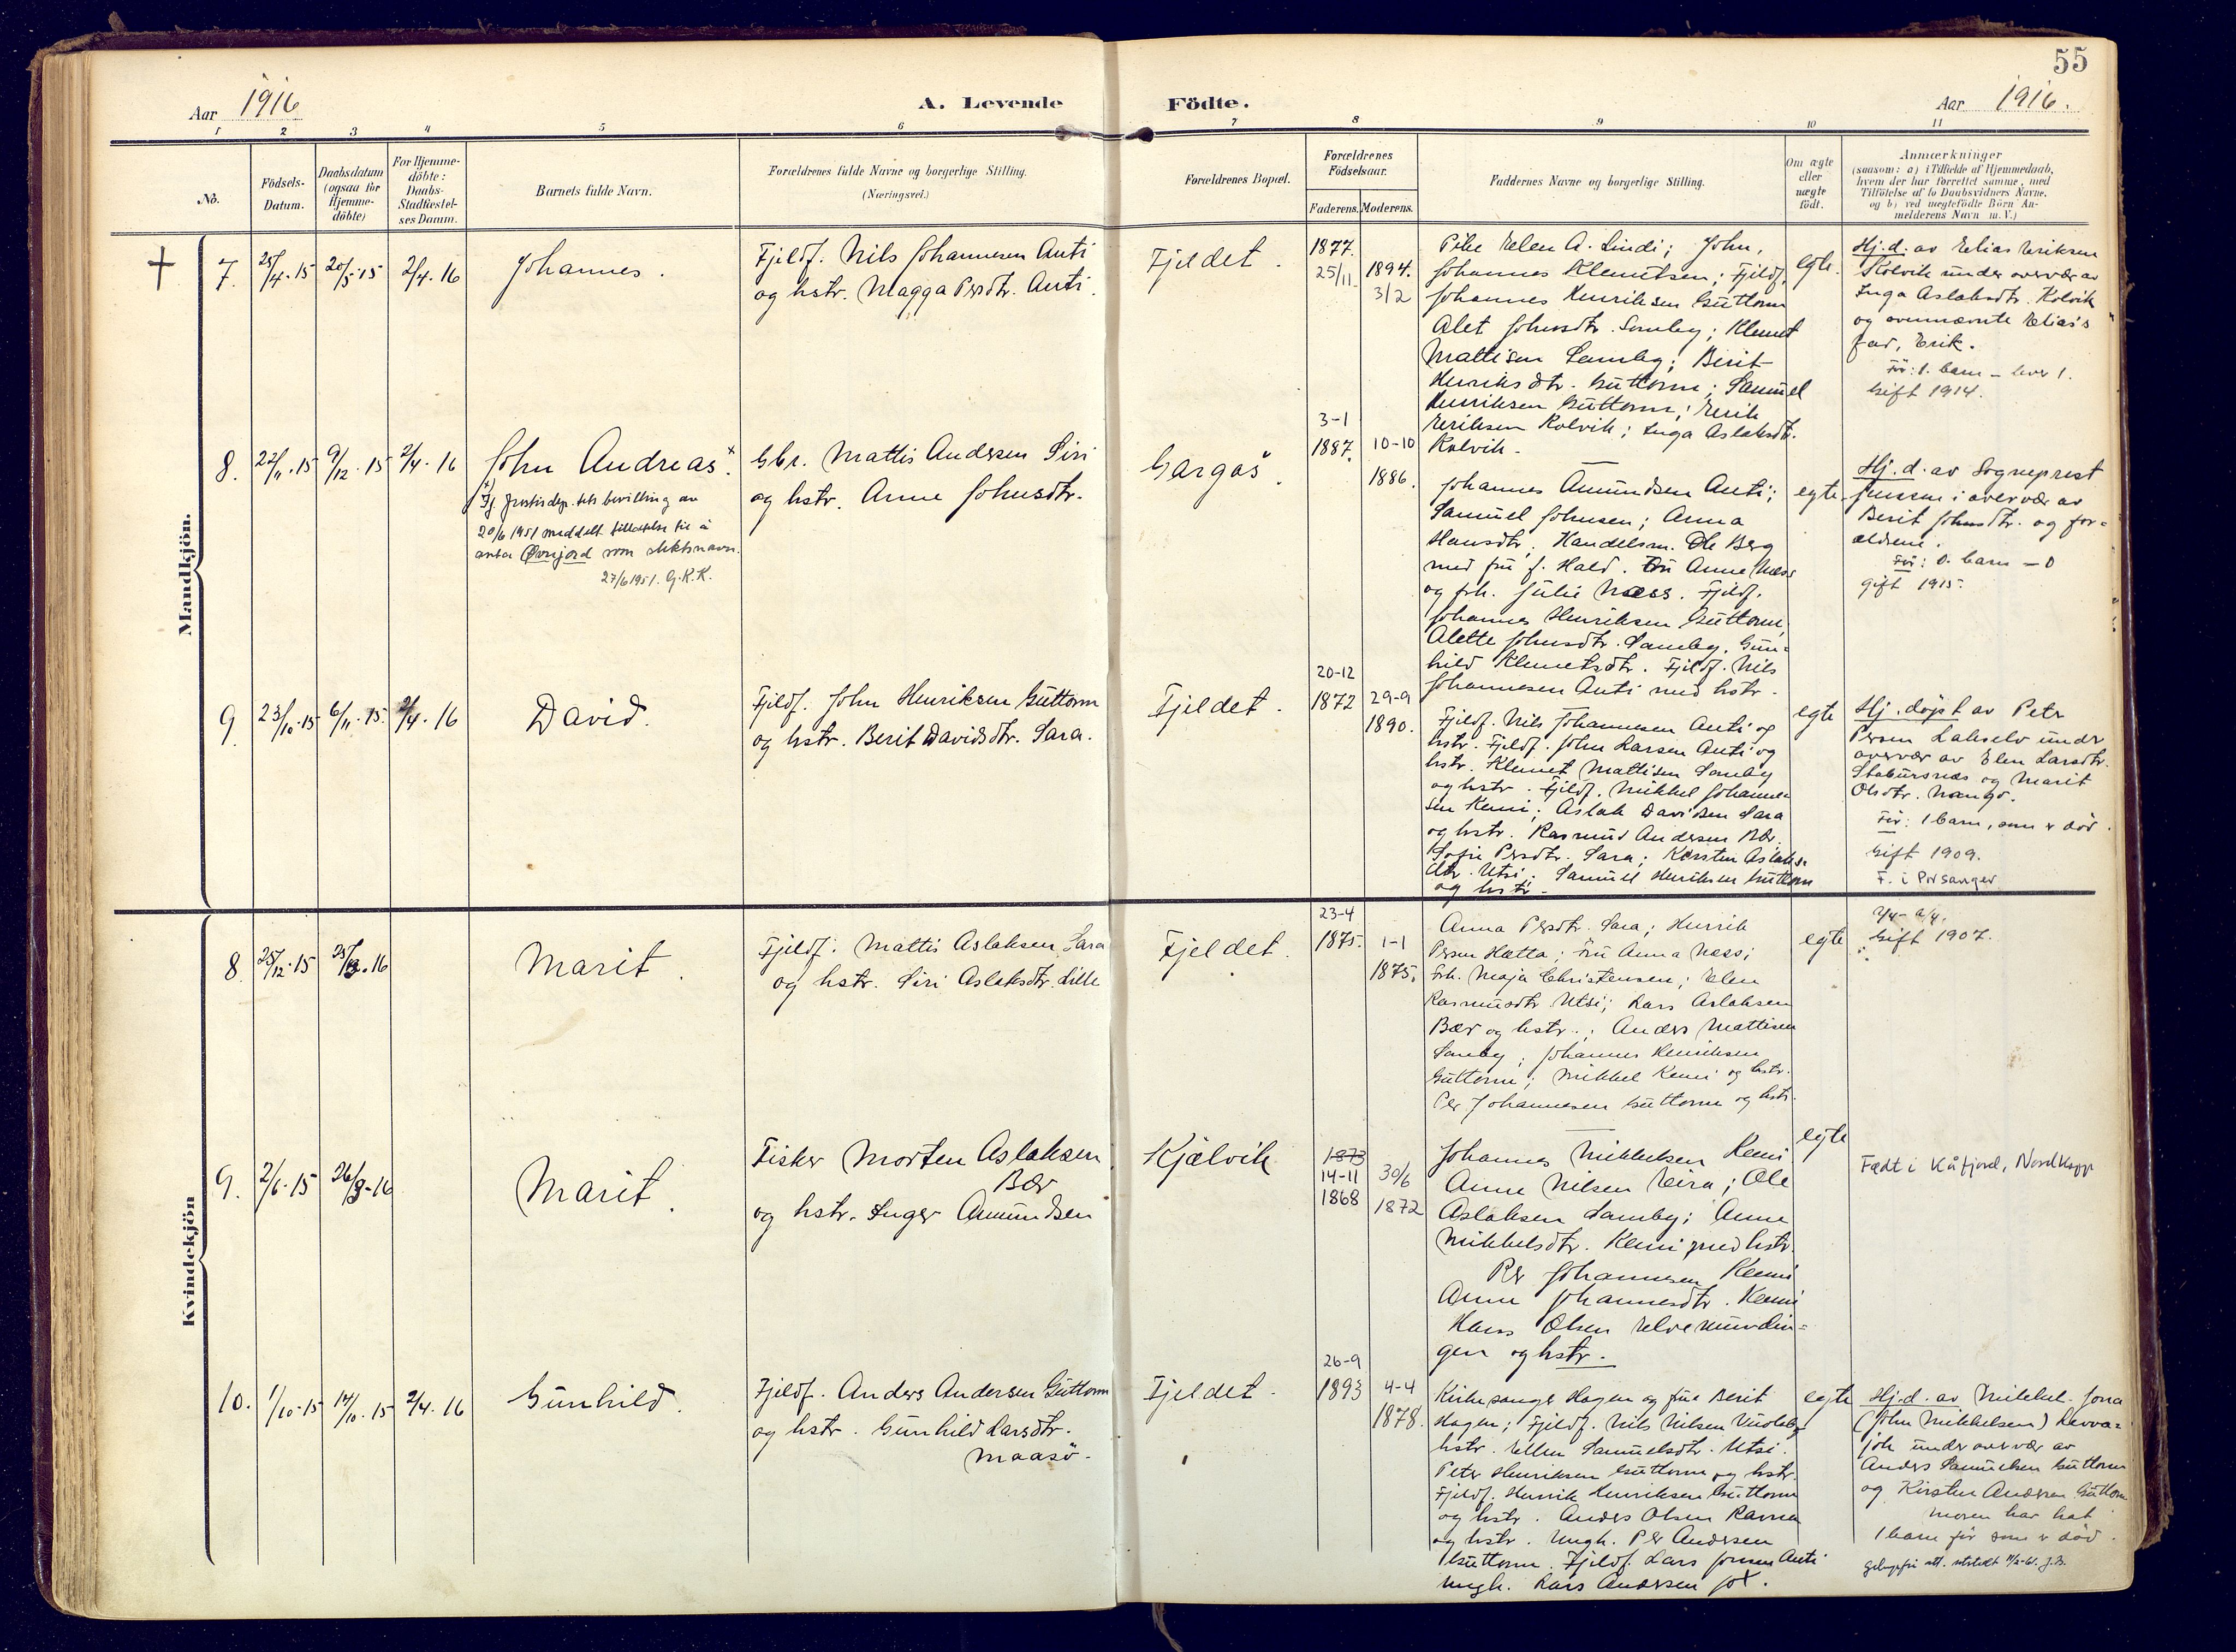 55
Aar 1916
A. Levende Födte.
Aar 1916.
1 2 3 4 5 6 7 8 9 10 11
No.
Födsels-
Datum.
Daabsdatum
(ogsaa for
Hjemme-
döbte)
For Hjemme-
döbte:
Daabs-
Stadfæstel-
ses Datum.
Barnets fulde Navn.
Forældrenes fulde Navne og borgerlige Stilling.
(Næringsvei.)
Forældrenes Bopæl.
Forældrenes
Födselsaar.
Faderens. Moderens.
Faddernes Navne og borgerlige Stilling.
Om ægte
eller
uægte
födt.
Anmærkninger
(saasom: a) i Tilfælde af Hjemmedaab,
hvem der har forrettet samme, med
Tilföielse af to Daabsvidners Navne,
og b) ved uægtefödte Börn An-
melderens Navn m. V.)
Mandkjön.
7. 25/4-15 20/5-15 2/4-16
Johannes.
Fjeldf. Nils Johannesen Anti
og hstr. Magga Persdtr. Anti.
Fjeldet.
1877.
25/11.
1894.
3/2
Pike Elen A. Lindi; John,
Johannes Klemetsen; Fjeldf.
Johannes Henriksen Guttorm
Alet Johnsdtr. Somby; Klemet
Mattisen Somby; Berit
Henriksdtr. Guttorm; Samuel
Henriksen Guttorm; Erik
Eriksen Kolvik; Inga Aslaksdt.
Kolvik.
egte.
Hj.d. av Elias Eriksen
Kolvik under overvær av
Inga Aslaksdtr. Kolvik
og ovennævnte Elias's
far, Erik.
Før: 1. barn - lever 1.
Gift 1914.
8. 22/11-15 9/12-15 2/4-16
John Andreas x.
x) Ifl justisdep.tets bevilling av
20/6 1951 meddelt tillatelse til å
anta Øvrejord som slektsnavn.
27/6 1951. G.K.K.
Gbr. Mattis Andersen Siri
og hstr. Anne Johnsdtr.
Gargos.
3-1
1887.
10-10
1886.
Johannes Amundsen Anti;
Samuel Johnsen; Anna
Hansdtr. Handelsm. Ole Berg
med fru f. Hald. Fru Anne Næss
og frk. Julie Næss. Fjeldf.
Johannes Henriksen Guttorm,
Alette Johnsdtr. Somby. Gun=
hild Klemetsdtr. Fjeldf. Nils
Johannesen Anti med hstr.
egte
Hj.d. av Sogneprest
Jenssen i overvær av
Berit Johnsdtr. og for=
ældrene.
Før: 0. barn - 0
gift 1915.
9. 23/10-15 6/11-15. 2/4-16
David.
Fjeldf. John Henriksen Guttorm
og hstr. Berit Davidsdtr. Sara.
Fjeldet.
20-12
1872
29-9
1890.
Fjeldf. Nils Johannesen Anti og
hstr. Fjeldf. John Larsen Anti og
hstr. Klemet Mattisen Somby
og hstr. Fjeldf. Mikkel Johanne=
sen Kemi; Aslak Davidsen Sara
og hstr. Rasmus Andersen Bær.
Sofie Persdtr. Sara; Kirsten Aslaks=
dtr. Utsi; Samuel Henriksen Guttorm
og hstr.
egte
Hj. døpt av Petr
Persen Lakselv under
overvær av Elen Larsdtr.
Stabursnæs og Marit
Olsdtr.
Før: 1 barn, som er død.
Gift 1909.
F. i Porsanger
Kvindekjön
8. 25/12-15
Marit.
Fjeldf. Mattis Aslaksen Sara
og hstr. Siri Aslaksdtr. Lille
Fjeldet.
23-4
1875.
1-1
1875.
Anna Persdtr. Sara; Henrik
Persen Hætta; Fru Anna Næss;
frk. Maja Christensen; Elen
Rasmusdtr Utsi; Lars Aslaksen
Bær og hstr.; Anders Mattisen
Somby; Johannes Henriksen
Guttorm; Mikkel Kemi og hstr.
Per Johannesen Guttorm og hstr.
egte
Gift 1907.
9. 2/6-15 26/3-16
Marit.
Fisker Morten Aslaksen
Bær
og hstr. Inger Amundsen
Kjelvik
1873
14-11
1868
30/6
1872
Johannes Mikkelsen Kemi
Anne Nilsen Eira; Ole
Aslaksen Somby; Anne
Mikkelsdtr. Kemi med hstr.
Per Johannesen Kemi
Anne Johannesdtr. Kemi
Hans Olsen Elvemundin=
gen og hstr.
egte
Født i Kåfjord, Nordkapp
10. 1/10-15 14/10-15 2/4-16
Gunhild.
Fjeldf. Anders Andersen Guttorm
og hstr. Gunhild Larsdtr.
Maasö.
Fjeldet.
26-9
1893
4-4
1878.
Kirkesanger Hagen og frue Berit
Hagen; Fjeldf. Nils Nilsen
hstr. Ellen Samuelsdtr. Utsi.
Peter Henriksen Guttorm og hstr.
Fjeldf. Henrik Henriksen Guttorm
og hstr. Anders Olsen Ravna
og hstr. Ungk. Per Andersen
Guttorm. Fjeldf. Lars Jonsen Anti
ungk. Lars Andersen
egte
Hj.d. av Mikkel
(John Mikkelsen) Levva=
jok under overvær av
Anders Samuelsen Guttorm
og Kirsten Andersen Guttorm
Moren har hat
1 barn før som er død.